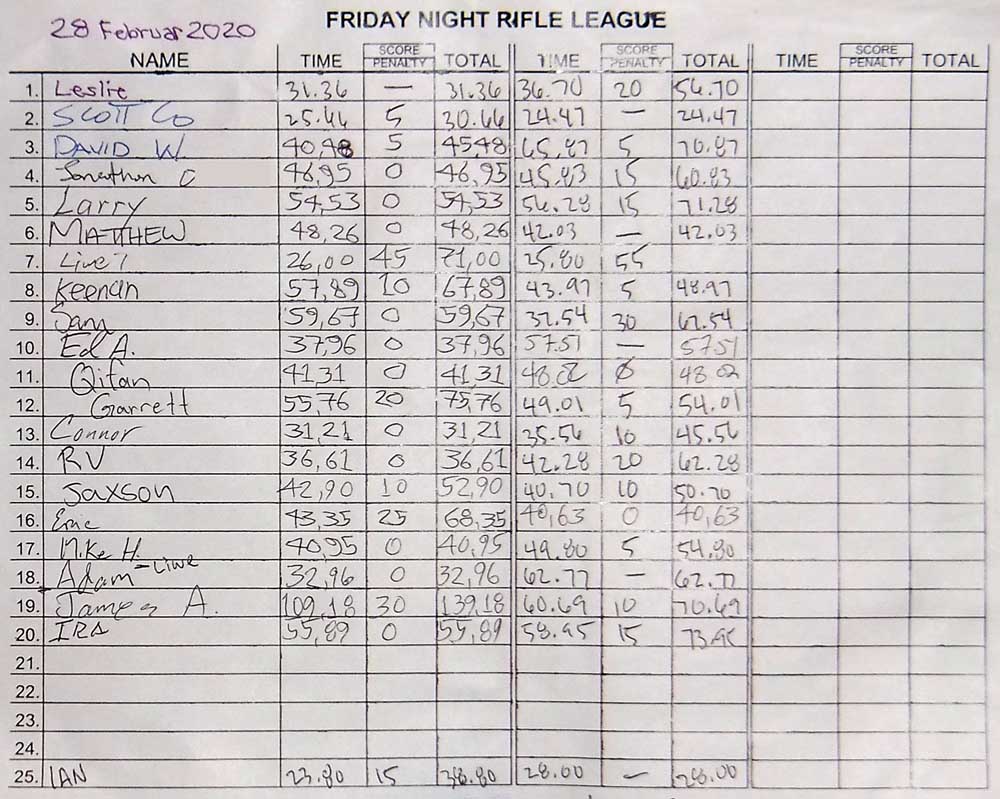 28 Februar 2020
FRIDAY NIGHT RIFLE LEAGUE
NAME TIME SCORE PENALTY TOTAL TIME SCORE PENALTY TOTAL TIME SCORE PENALTY TOTAL
1. Leslie 31.36 — 31.36 36.70 20 56.70
2. SCOTT Co 25.46 5 30.46 24.47 — 24.47
3. DAVID W 40,48 5 4548 65.87 5 70.87
4. Jonathon C 46,95 0 46,95 45.83 15 60.83
5. Larry 54,53 0 54,53 56.28 15 71.28
6. MATTHEW 48,26 0 48,26 42.03 — 42.03
7. 26,00 45 71,00 25.80 55
8. Keenan 57,89 10 67,89 43.97 5 48.97
9. Sam 59,67 0 59,67 32.54 30 62.54
10. Ed A. 37,96 0 37,96 57.51 — 57.51
11. Qifan 41,31 0 41,31 48.02 0 48.02
12. Garrett 55,76 20 75,76 49.01 5 54.01
13. Connor 31,21 0 31,21 35.56 10 45.56
14. RV 36,61 0 36,61 42.28 20 62.28
15. Jaxson 42,90 10 52,90 40.70 10 50.70
16. Eric 43,35 25 68,35 40,63 0 40,63
17. Mike H. 40,95 0 40,95 49.80 5 54.80
18. Adam - Live 32,96 0 32,96 62.77 — 62.77
19. James A. 109,18 30 139,18 60.69 10 70.69
20. IRA 55,89 0 55,89 58.95 15 73.95
21.
22.
23.
24.
25. IAN 23.80 15 38.80 28.00 — 28.00